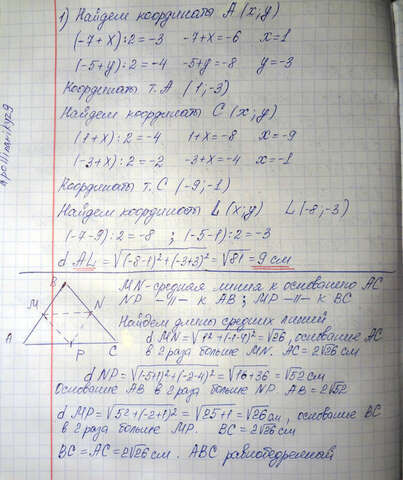 1) Найдем координаты A (x;y)
(-7+x):2=-3 -7+x=-6 x=1
(-5+y):2=-4 -5+y=-8 y=-3
Координаты т.A (1;-3)
Найдем координаты C (x;y)
(1+x):2=-4 1+x=-8 x=-9
(-3+x):2=-2 -3+x=-4 x=-1
Координаты т.C (-9;-1)
Найдем координаты L (x;y) L(-8;-3)
(-7-9):2=-8 ; (-5-1):2=-3
d AL=√(-8-1)²+(-3+3)²=√81=9 см
MN-средняя линия к основанию AC
NP -"- к AB; MP -"- к BC
Найдем длины средних линий
d MN=√1²+(-1-4)²=√26, основание AC
в 2 раза больше MN. AC=2√26 см
d NP=√(-5+1)²+(-2-4)²=√16+36=√52 см
Основание AB в 2 раза больше NP. AB=2√52
d MP=√5²+(-2+1)²=√25+1=√26 см, основание BC
в 2 раза больше MP. BC=2√26 см
BC=AC=2√26 см. ABC равнобедренный
A
B
C
M
N
P
apollinariky29